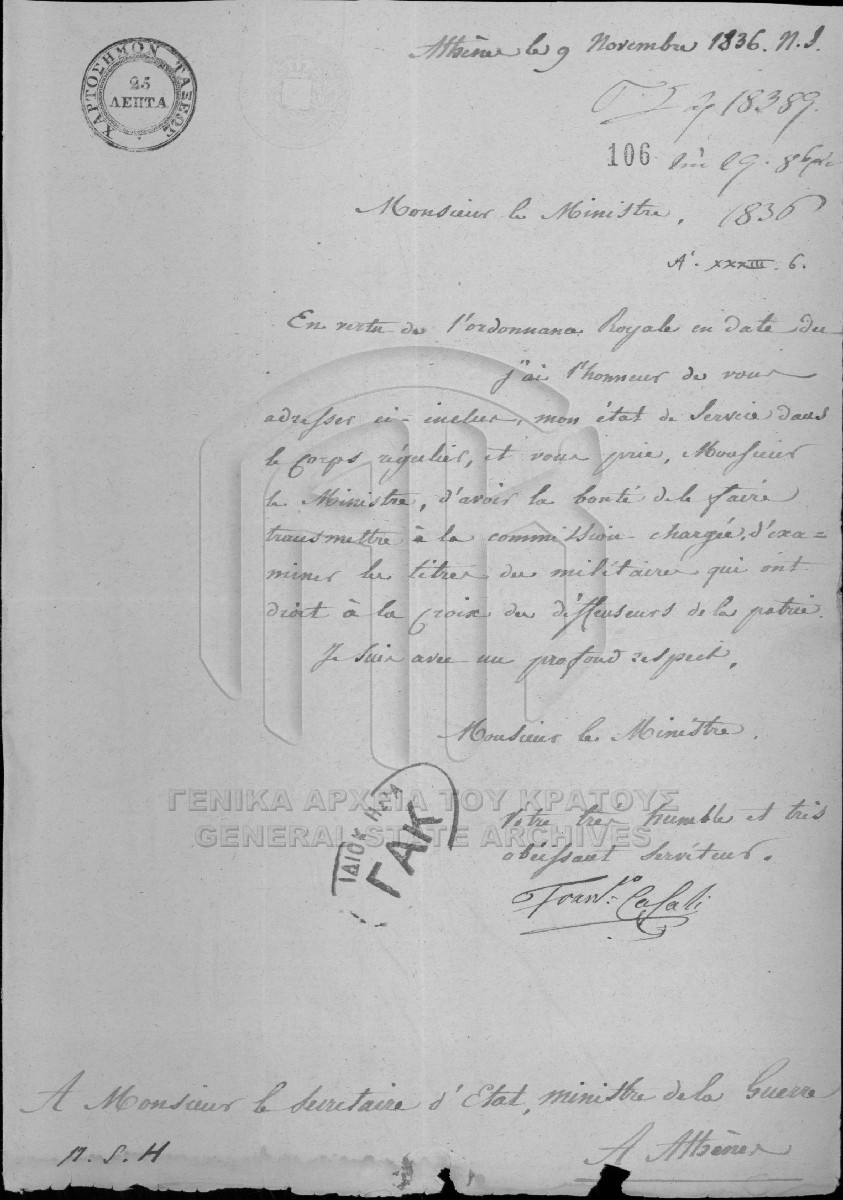 ΧΑΡΤΟΣΗΜΟΝ ΤΑΞΕΩΣ
25
ΛΕΠΤΑ
Athènes le 9 Novembre 1836. N. S.
18389.
106 19. 8bre
Monsieur le Ministre, 1836
A'. xxxIII. 6.
En vertu de l'ordonnance Royale en date du
j'ai l'honneur de vous
adresser ci-inclus, mon état de Service dans
le corps régulier, et vous prie, Monsieur
le Ministre, d'avoir la bonté de le faire
transmettre à la commission chargée, d'exa=
miner les titres des militaires qui ont
droit à la Croix des deffenseurs de la patrie.
Je suis avec un profond respect,
Monsieur le Ministre.
Votre très humble et très
obéissant Serviteur.
Franco. Casali
ΙΔΙΟΚ
ΓΑΚ
ΓΕΝΙΚΑ ΑΡΧΕΙΑ ΤΟΥ ΚΡΑΤΟΥΣ
GENERAL STATE ARCHIVES
A Monsieur le Secretaire d'Etat, ministre de la Guerre
A Athènes